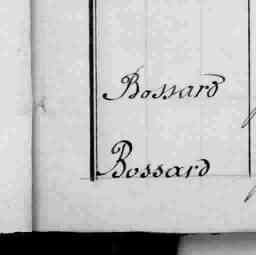 Bossard
Bossard